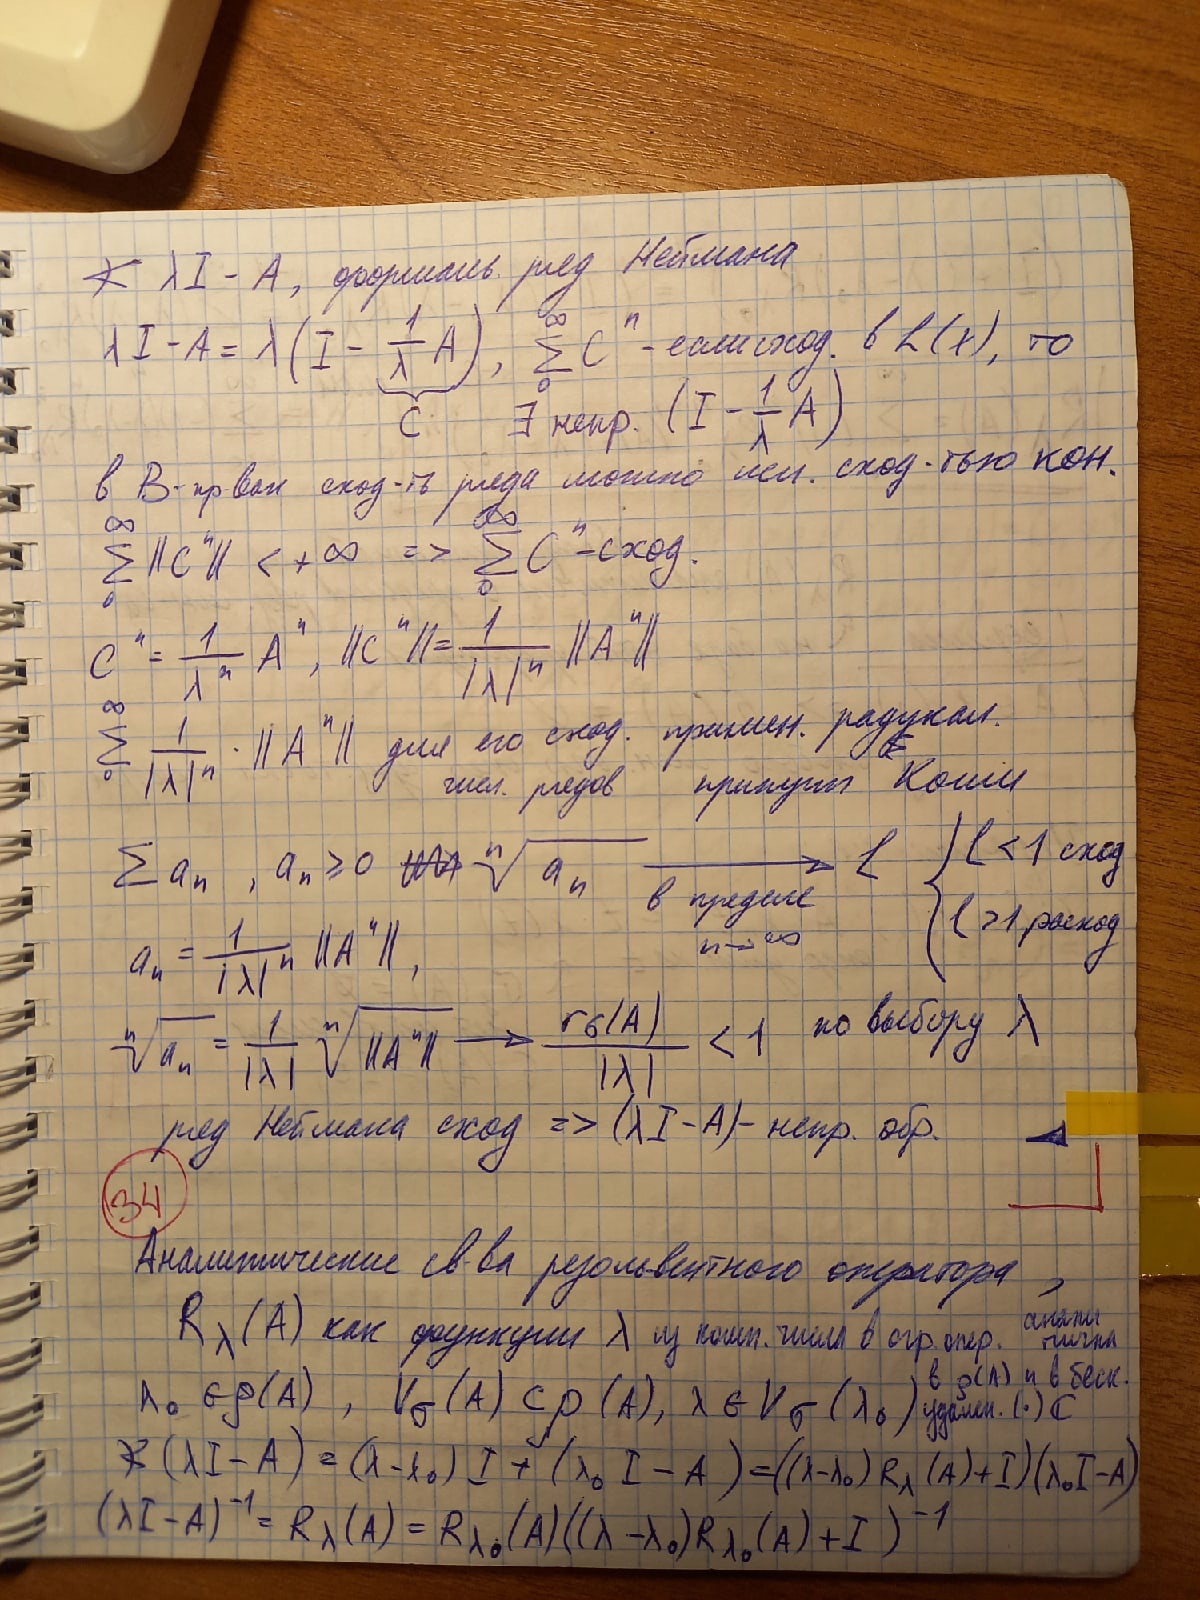 ∀ λI - A, формаль. ряд Неймана
λI - A = λ(I - 1/λ A), ∑₀^∞ Cⁿ - если сход. в L(X), то
C ∃ непр. (I - 1/λ A)
в B-пр-вах сход-ть ряда можно исп. сход-тью кон.
∑₀^∞ ||Cⁿ|| < +∞ => ∑₀^∞ Cⁿ - сход.
Cⁿ = 1/λⁿ Aⁿ, ||Cⁿ|| = 1/|λ|ⁿ ||Aⁿ||
∑₀^∞ 1/|λ|ⁿ · ||Aⁿ|| для его сход. примен. радикал.
числ. рядов признак Коши
∑ aₙ, aₙ ≥ 0 ⁿ√aₙ → l { l < 1 сход
в пределе n→∞ l > 1 расход
aₙ = 1/|λ|ⁿ ||Aⁿ||,
ⁿ√aₙ = 1/|λ| ⁿ√||Aⁿ|| → rσ(A)/|λ| < 1 по выбору λ
ряд Неймана сход => (λI - A) - непр. обр.
34
Аналитические св-ва резольвентного оператора,
R_λ(A) как функции λ из комп. числа в огр. опер. анали
тична
в ρ(A) и в беск.
λ₀ ∈ ρ(A), V_σ(A) ⊂ ρ(A), λ ∈ V_σ(λ₀) удален. (·) C
∀ (λI - A) = (λ-λ₀) I + (λ₀I - A) = ((λ-λ₀) R_λ(A) + I)(λ₀I - A)
(λI - A)⁻¹ = R_λ(A) = R_λ₀(A)((λ - λ₀)R_λ₀(A) + I)⁻¹